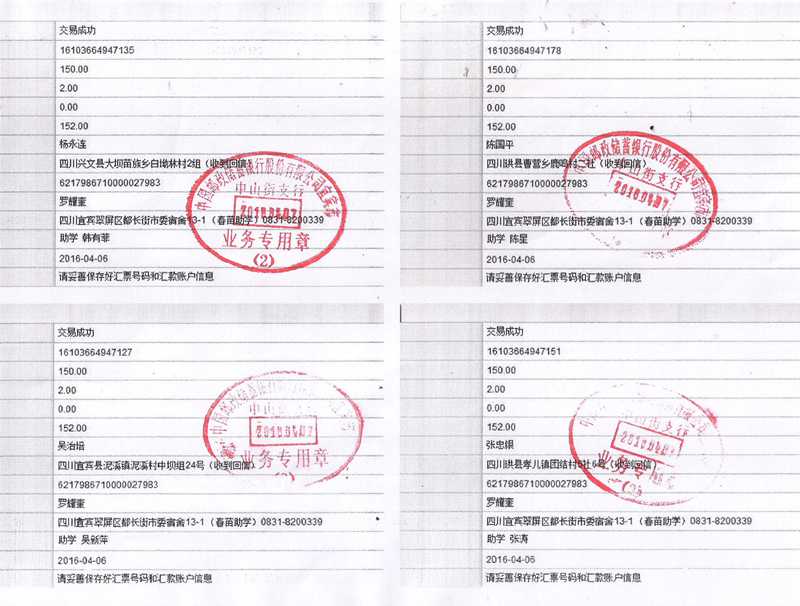 交易成功
16103664947135
150.00
2.00
0.00
152.00
杨永连
四川兴文县大坝苗族乡白坳林村2组（收到回信）
6217986710000027983
罗耀奎
四川宜宾翠屏区都长街市委宿舍13-1（春苗助学）0831-8200339
助学 韩有菲
2016-04-06
请妥善保存好汇票号码和汇款账户信息
中国邮政储蓄银行股份有限公司宜宾市
中山街支行
2016.04.07
业务专用章
(2)
交易成功
16103664947178
150.00
2.00
0.00
152.00
陈国平
四川珙县曹营乡鹿鸣村二社（收到回信）
6217986710000027983
罗耀奎
四川宜宾翠屏区都长街市委宿舍13-1（春苗助学）0831-8200339
助学 陈星
2016-04-06
请妥善保存好汇票号码和汇款账户信息
邮政储蓄银行股份有限公司
中山街支行
2016.04.07
交易成功
16103664947127
150.00
2.00
0.00
152.00
吴治培
四川宜宾县泥溪镇泥溪村中坝组24号（收到回信）
6217986710000027983
罗耀奎
四川宜宾翠屏区都长街市委宿舍13-1（春苗助学）0831-8200339
助学 吴新萍
2016-04-06
请妥善保存好汇票号码和汇款账户信息
中国邮政储蓄银行
中山街支行
2016.04.07
业务专用章
交易成功
16103664947151
150.00
2.00
0.00
152.00
张忠银
四川珙县孝儿镇团结村5社6号（收到回信）
6217986710000027983
罗耀奎
四川宜宾翠屏区都长街市委宿舍13-1（春苗助学）0831-8200339
助学 张涛
2016-04-06
请妥善保存好汇票号码和汇款账户信息
中山街支行
2016.04.07
业务专用章